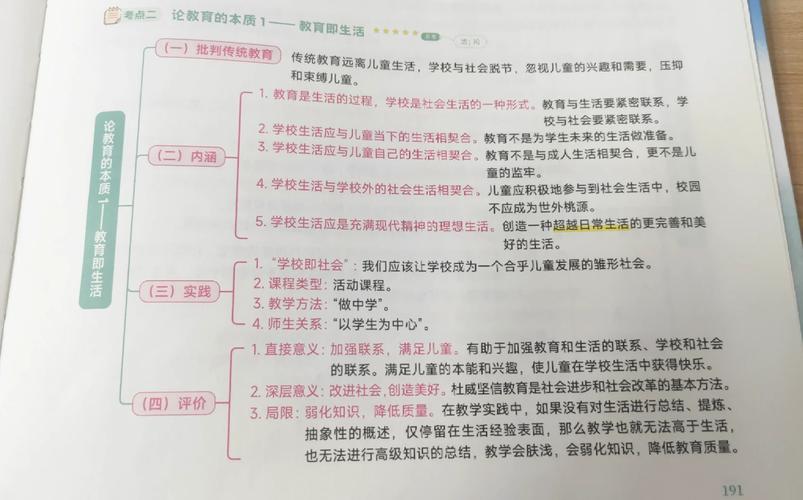 考点二 论教育的本质1——教育即生活 ★★★★★
论教育的本质1——教育即生活
(一)批判传统教育
传统教育远离儿童生活，学校与社会脱节，忽视儿童的兴趣和需要，压抑
和束缚儿童。
(二)内涵
1. 教育是生活的过程，学校是社会生活的一种形式。教育与生活要紧密联系，学
校与社会要紧密联系。
2. 学校生活应与儿童当下的生活相契合。教育不是为学生未来的生活做准备。
3. 学校生活应与儿童自己的生活相契合。教育不是与成人生活相契合，更不是儿
童的监牢。
4. 学校生活与学校外的社会生活相契合。儿童应积极地参与到社会生活中，校园
不应成为世外桃源。
5. 学校生活应是充满现代精神的理想生活。创造一种超越日常生活的更完善和美
好的生活。
(三)实践
1. “学校即社会”：我们应该让学校成为一个合乎儿童发展的雏形社会。
2. 课程类型：活动课程。
3. 教学方法：“做中学”。
4. 师生关系：“以学生为中心”。
(四)评价
1. 直接意义：加强联系，满足儿童。有助于加强教育和生活的联系、学校和社会
的联系。满足儿童的本能和兴趣，使儿童在学校生活中获得快乐。
2. 深层意义：改进社会，创造美好。杜威坚信教育是社会进步和社会改革的基本方法。
3. 局限：弱化知识，降低质量。在教学实践中，如果没有对生活进行总结、提炼、
抽象性的概述，仅停留在生活经验表面，那么教学也就无法高于生活，
也无法进行高级知识的总结，教学会肤浅，会弱化知识，降低教育质量。
191